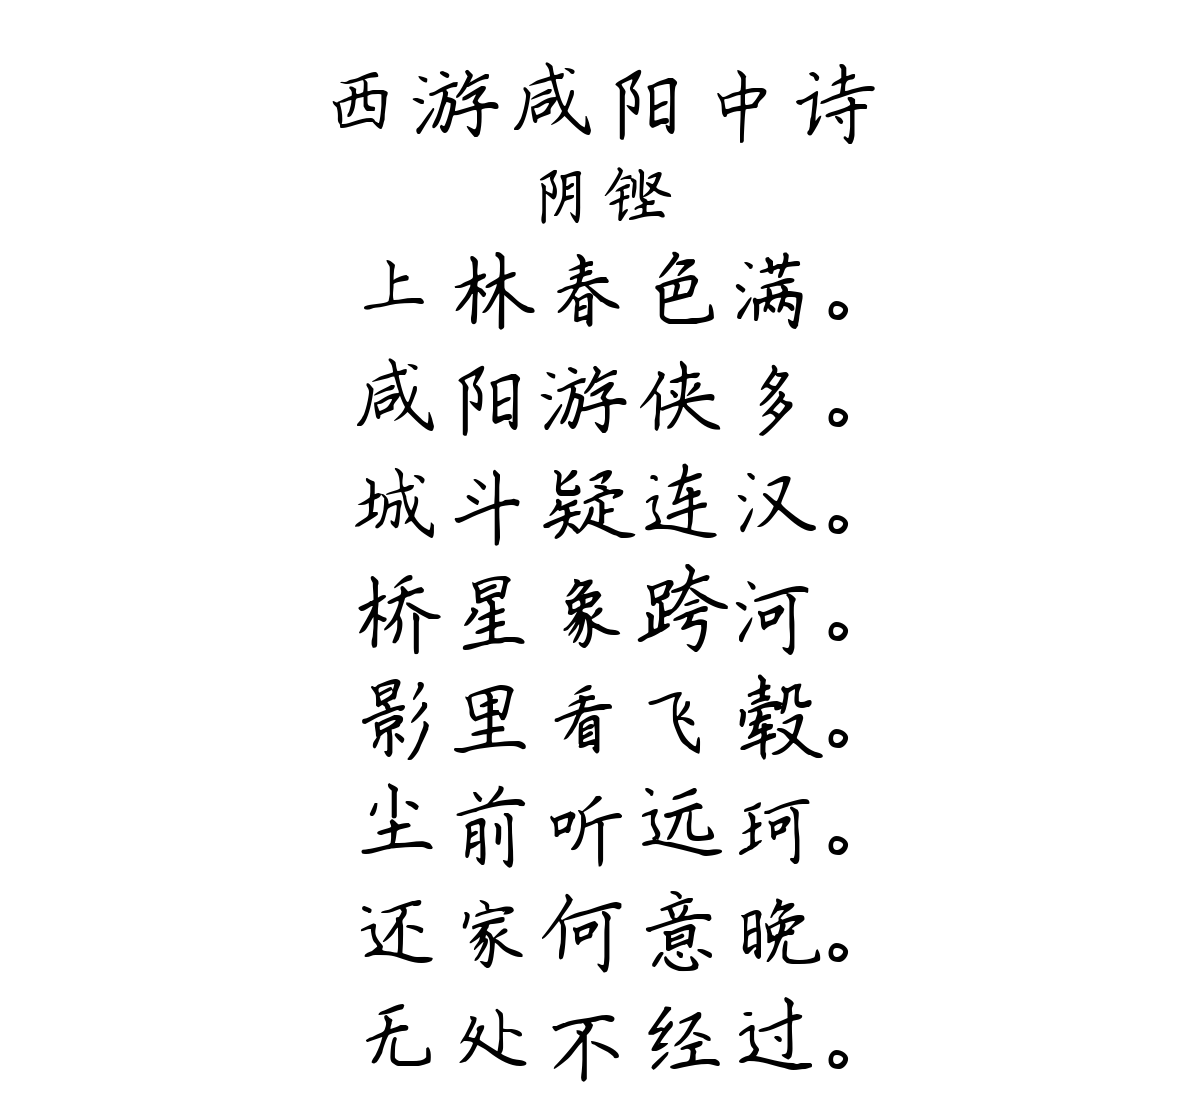 西游咸阳中诗
阴铿
上林春色满。
咸阳游侠多。
城斗疑连汉。
桥星象跨河。
影里看飞毂。
尘前听远珂。
还家何意晚。
无处不经过。